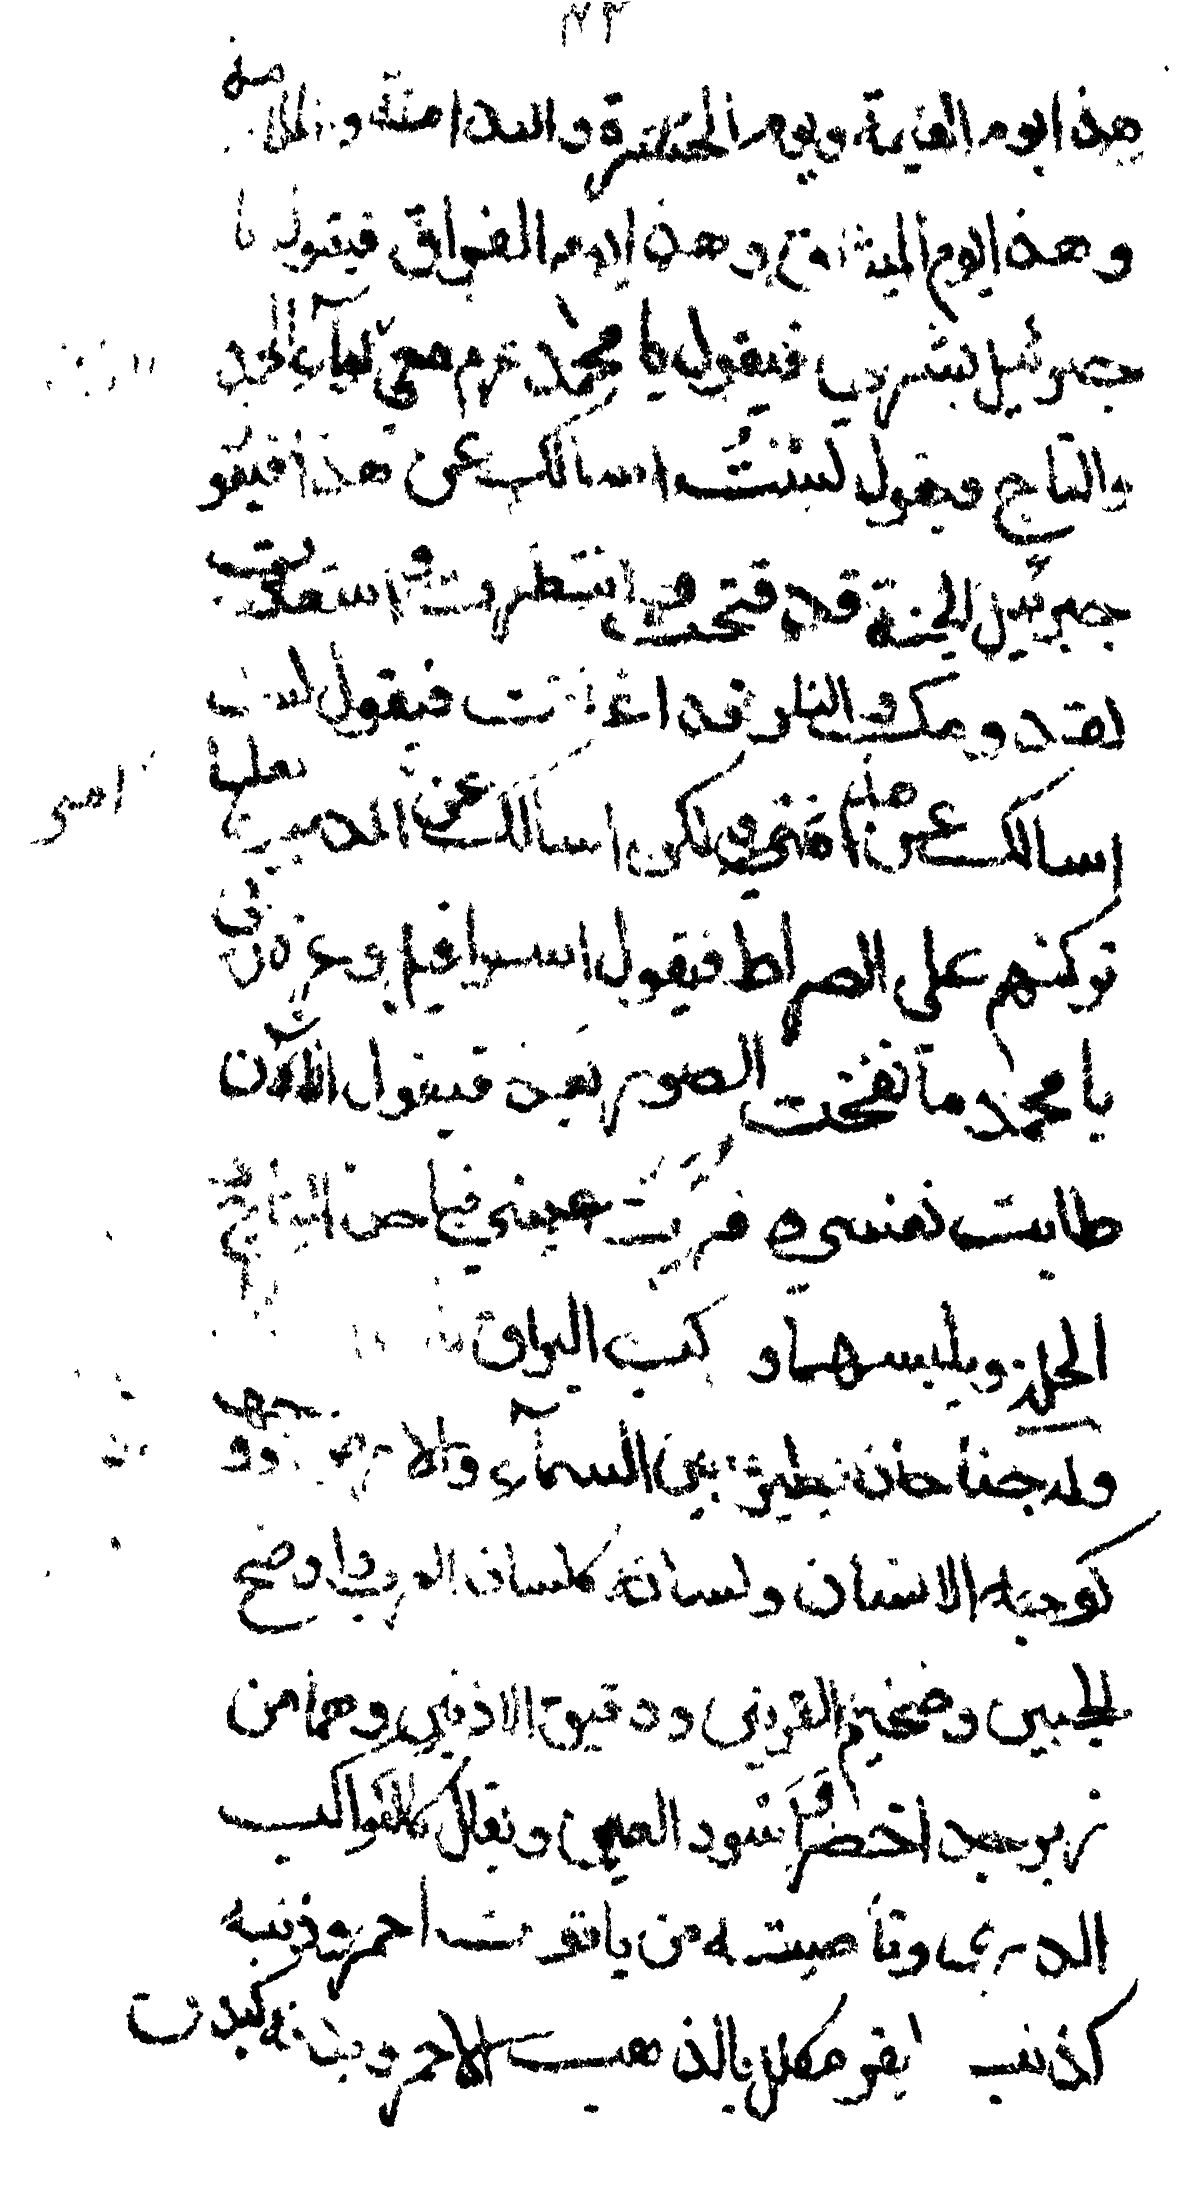 هذا يوم القيامة ويوم الحسرة والندامة
وهذا يوم الميثاق وهذا يوم الفراق فيقول يا
جبرئيل بشرني فيقول يا محمد معي لواء الحمد
والتاج فيقول لست اسالك عن هذا فيقو
جبرئيل الجنة قد فتحت وانتظرت واستعدت
لقد ومك والنار قد اغلقت فيقول لست
اسالك عن هذا امتي ولكن اسالك عن المذنبين لعلها
تركتهم على الصراط فيقول اسرافيل وعزة ربي
يا محمد ما نفخت الصور بعد فيقول الآن
طابت نفسي وقرت عيني فياخذ التاج
الحلة ويلبسهما و كب البراق
وله جناحان يطير بين السمآء والا وو جهه
كوجه الانسان ولسانه كلسان العرب واوضح
الجبين وضخيم القرنين ودقيق الاذنين وهما من
زبرجد اخضر اسود العين ويقال كالكواكب
الدري وناصيته من ياقوت احمر وذنبه
كذنب ابقر مكلل بالذهب الاحمر وبدنه كبدن